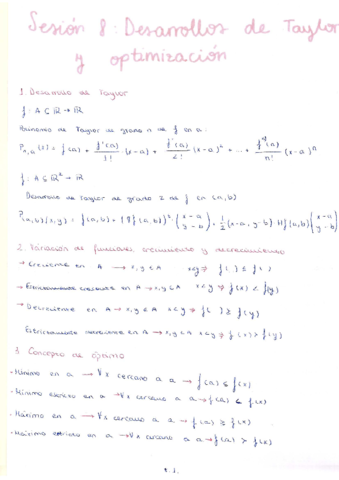 Sesión 8: Desarrollos de Taylor
y optimización
1. Desarrollo de Taylor
f: A ⊆ ℝ → ℝ
Polinomio de Taylor de grado n de f en a:
Pₙ,ₐ(x) = f(a) + f'(a)/1! (x-a) + f''(a)/2! (x-a)² + ... + fⁿ(a)/n! (x-a)ⁿ
f: A ⊆ ℝ² → ℝ
Desarrollo de Taylor de grado 2 de f en (a,b)
P(a,b)(x,y) = f(a,b) + (∇f(a,b))ᵗ · (x-a / y-b) + 1/2 (x-a, y-b) Hf(a,b) (x-a / y-b)
2. Variación de funciones, crecimiento y decrecimiento
- Creciente en A → x,y ∈ A x<y ⇒ f( ) ≤ f( )
- Estrictamente creciente en A → x,y ∈ A x<y ⇒ f(x) < f(y)
- Decreciente en A → x,y ∈ A x<y ⇒ f( ) ≥ f(y)
Estrictamente decreciente en A → x,y ∈ A x<y ⇒ f(x) > f(y)
3. Concepto de óptimo
- Mínimo en a → ∀x cercano a a → f(a) ≤ f(x)
- Mínimo estricto en a → ∀x cercano a a → f(a) < f(x)
- Máximo en a → ∀x cercano a a → f(a) ≥ f(x)
- Máximo estricto en a → ∀x cercano a a → f(a) > f(x)